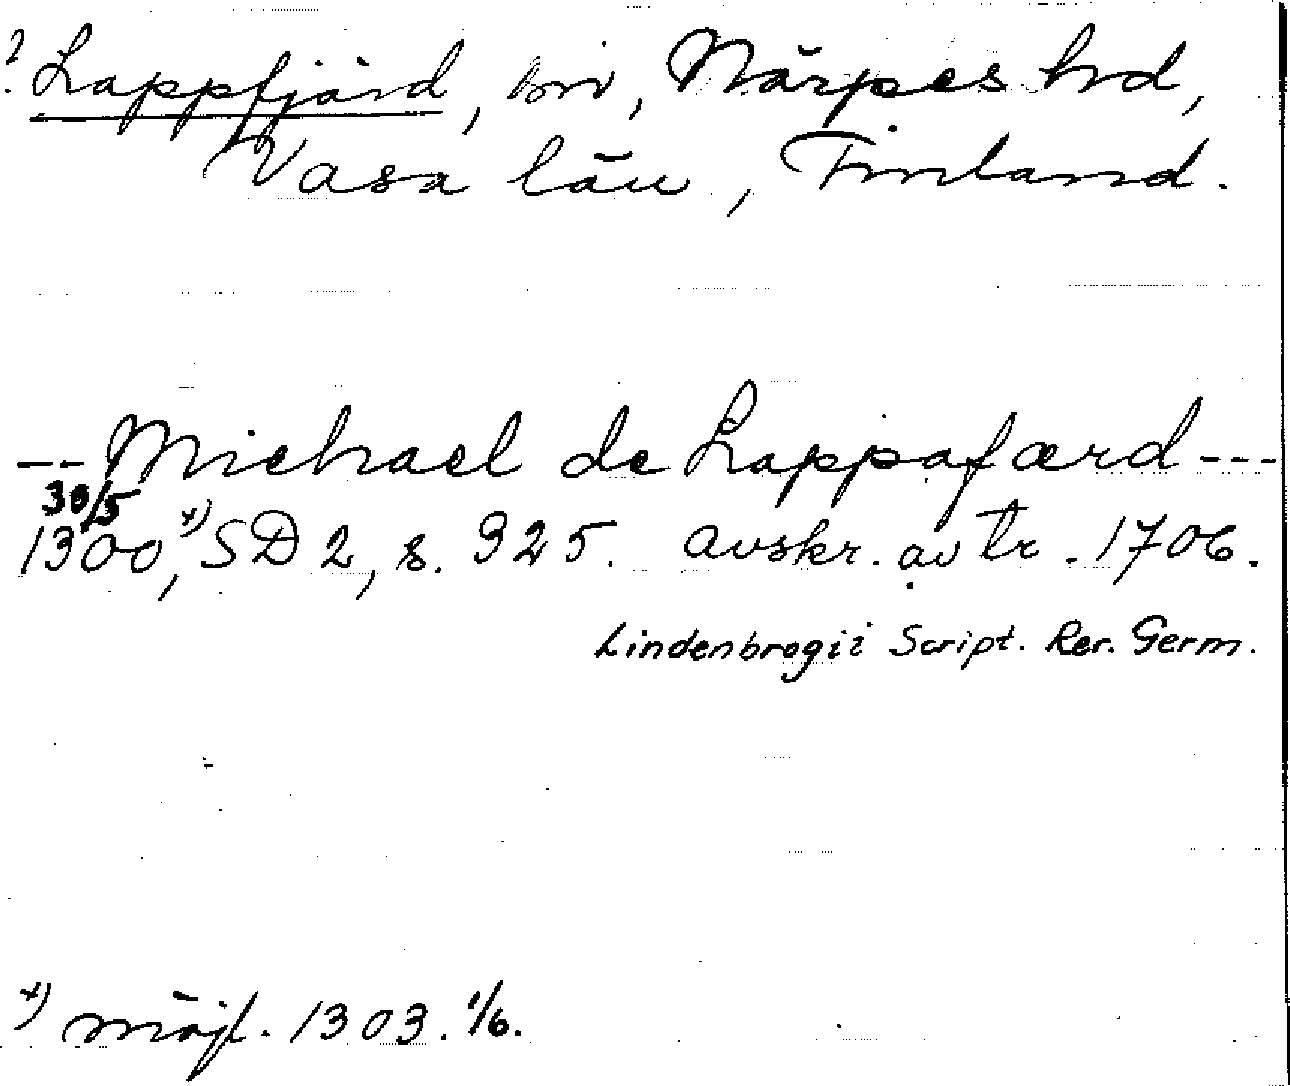 ? Lappfjärd, sn, Närpes hd,
Vasa län, Finland.
--- Michael de Lappafærd ---
30/5
1300,ˣ⁾ SD 2, s. 325. avskr. av tr. 1706.
Lindenbrogii Script. Rer. Germ.
x) möjl. 1303. 1/6.